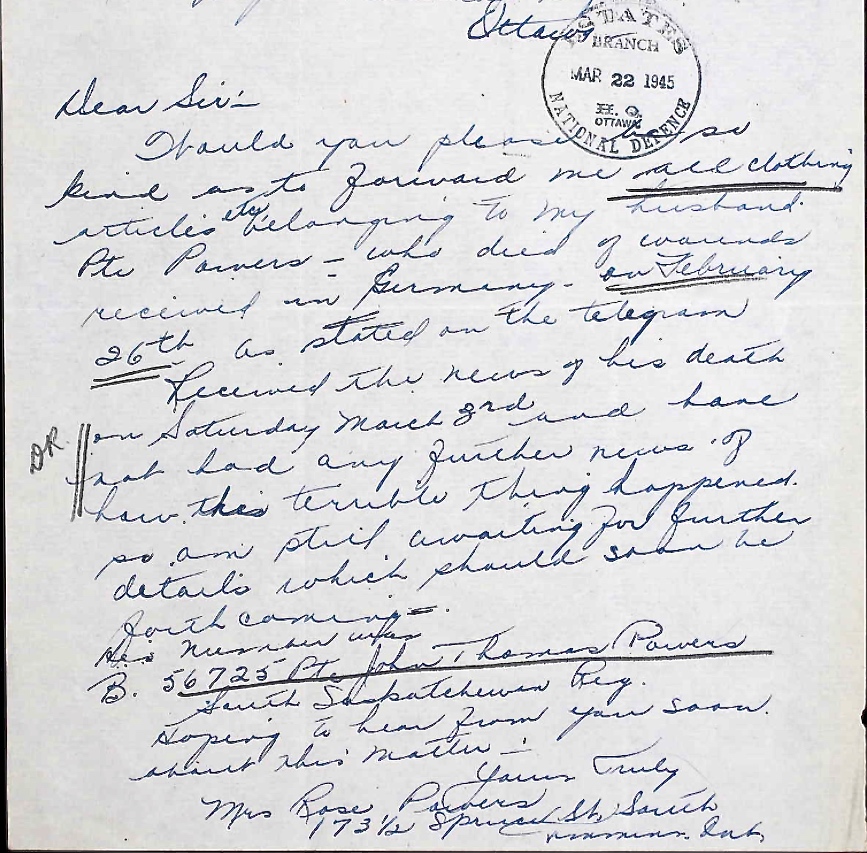 Ottawa
ESTATES
BRANCH
MAR 22 1945
H. Q.
OTTAWA
NATIONAL DEFENCE
Dear Sir:-
Would you please be so
kind as to forward me all clothing
articles etc belonging to my husband
Pte Powers - who died of wounds
received in Germany - on February
26th as stated on the telegram
Received the news of his death
on Saturday March 3rd and have
DR.
not had any further news of
how this terrible thing happened.
so am still awaiting for further
details which should soon be
forthcoming.
His number was
B. 56725 Pte John Thomas Powers
South Saskatchewan Reg.
Hoping to hear from you soon.
about this matter -
Yours Truly
Mrs Rose Powers
173 1/2 Spruce St. South
Timmins. Ont.